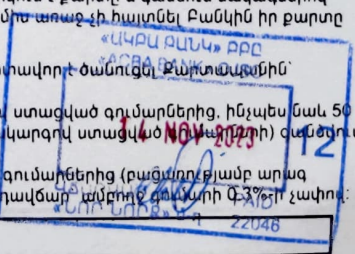 միս առաջ չի հայտնել Բանկին իր քարտը
«ԱԿԲԱ ԲԱՆԿ» ԲԲԸ
«ACBA BANK» OJSC
տավոր է ծանուցել Քարտապանին՝
ստացված գումարներից, ինչպես նաև 50
կարգով ստացված գումարների) գանձում
14 NOV 2023
12
գումարներից (բացառությամբ արագ
դավճար՝ ամբողջ գումարի 0.3%-ի չափով:
PAID
«ՆՈՐ ՆՈՐՔ» Մ-Ղ
22046